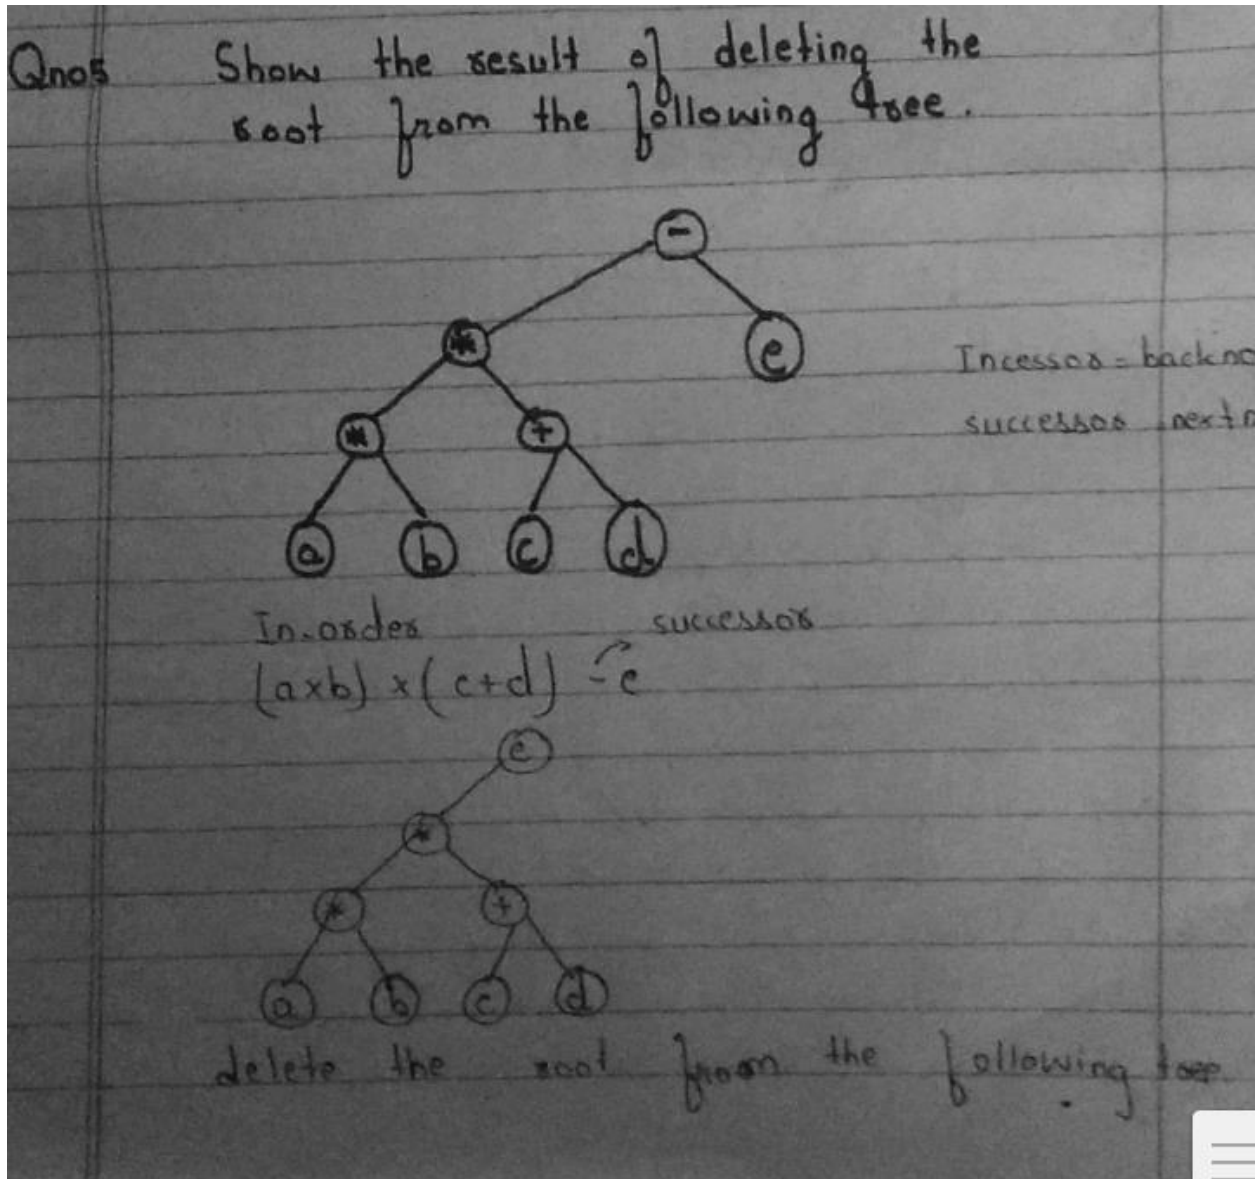 Qno5 Show the result of deleting the
root from the following tree.
-
*
e
Incessor = backno
*
+
successor nextn
a b c d
In-order successor
(a×b) × (c+d) - e
e
*
* +
a b c d
delete the root from the following tree